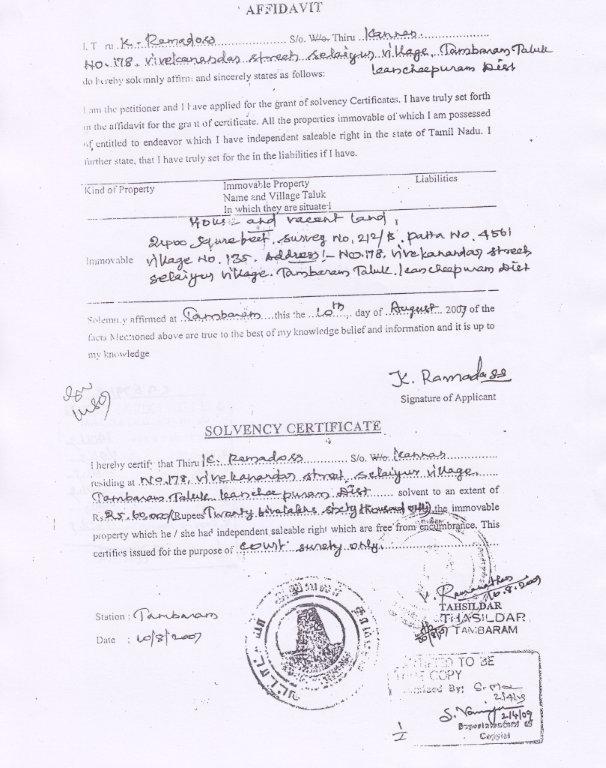 AFFIDAVIT
I. T ru K. Ramadoss S/o. W/o. Thiru Kannan
No. 178. vivekanandar street selaiyur village. Tambaram Taluk
do hereby solemnly affirm and sincerely states as follows: kancheepuram Dist
I am the petitioner and I have applied for the grant of solvency Certificates. I have truly set forth
in the affidavit for the grant of certificate. All the properties immovable of which I am possessed
of entitled to endeavor which I have independent saleable right in the state of Tamil Nadu. I
further state, that I have truly set for the in the liabilities if I have.
Kind of Property Immovable Property Liabilities
Name and Village Taluk
In which they are situated
House and vacent land,
2400 Squre feet. survey No, 212/B. patta No. 4561
Immovable village No. 135. Address:- No.178. vivekanandar street
selaiyur village. Tambaram Taluk. kancheepuram Dist
Solemnly affirmed at Tambaram this the 10th day of August 2007 of the
facts Mectioned above are true to the best of my knowledge belief and information and it is up to
my knowledge
K. Ramadoss
Signature of Applicant
SOLVENCY CERTIFICATE
I hereby certify that Thiru K. Ramadoss S/o. W/o. Kannan
residing at No.178, vivekanandar street, selaiyur village,
Tambaram Taluk kancheepuram Dist solvent to an extent of
Rs. 25.60.000/Rupees Twenty fivelakhs sixty thousand only the immovable
property which he / she had independent saleable right which are free from encumbrance. This
certifies issued for the purpose of court surety only.
Station : Tambaram
Date : 10/8/2007
10.8.2007
TAHSILDAR
THASILDAR
TAMBARAM
TO BE
COPY
By:
2/4/09
S.
2/4/09
Superintendent of